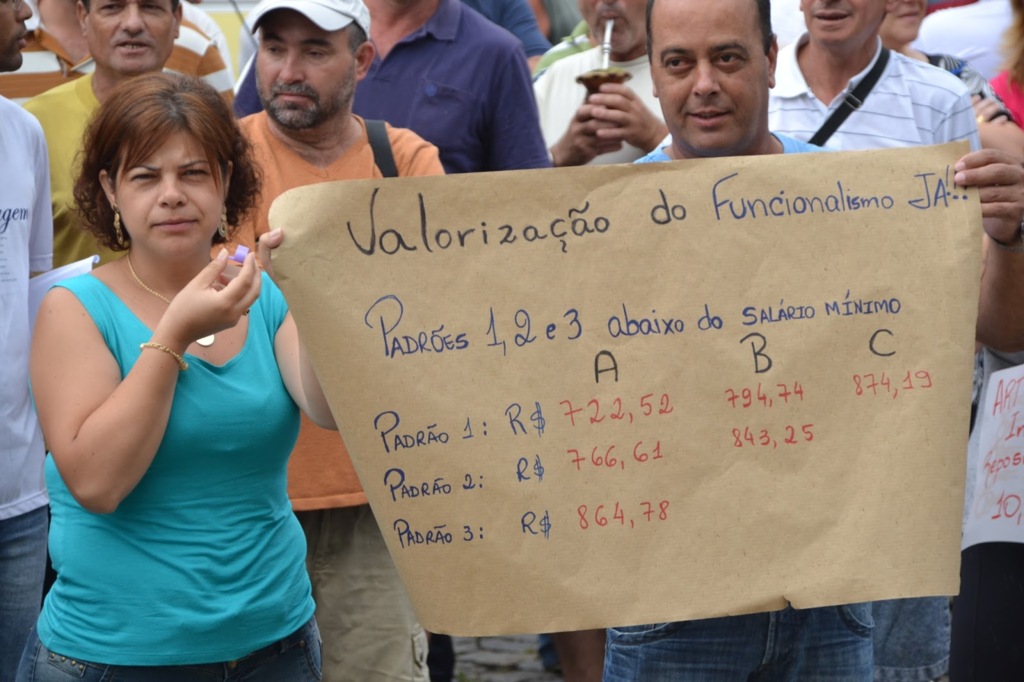 Valorização do Funcionalismo JÁ!!!
PADRÕES 1, 2 e 3 abaixo do SALÁRIO MÍNIMO
A B C
PADRÃO 1: R$ 722,52 794,74 874,19
PADRÃO 2: R$ 766,61 843,25
PADRÃO 3: R$ 864,78
ART
10,